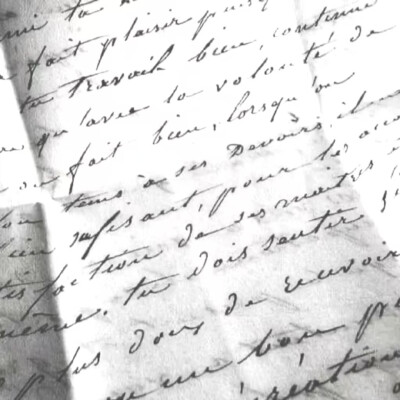 ta
fait plaisir puisq
tu travail bien, continue
qu'avec la volonté de
se fait bien, lorsqu'on
tems à ses Devoirs, il
bien suffisant, pour les
tisfaction de ses maitres
même, tu dois sentir
plus doux de recevoir
un bon
création